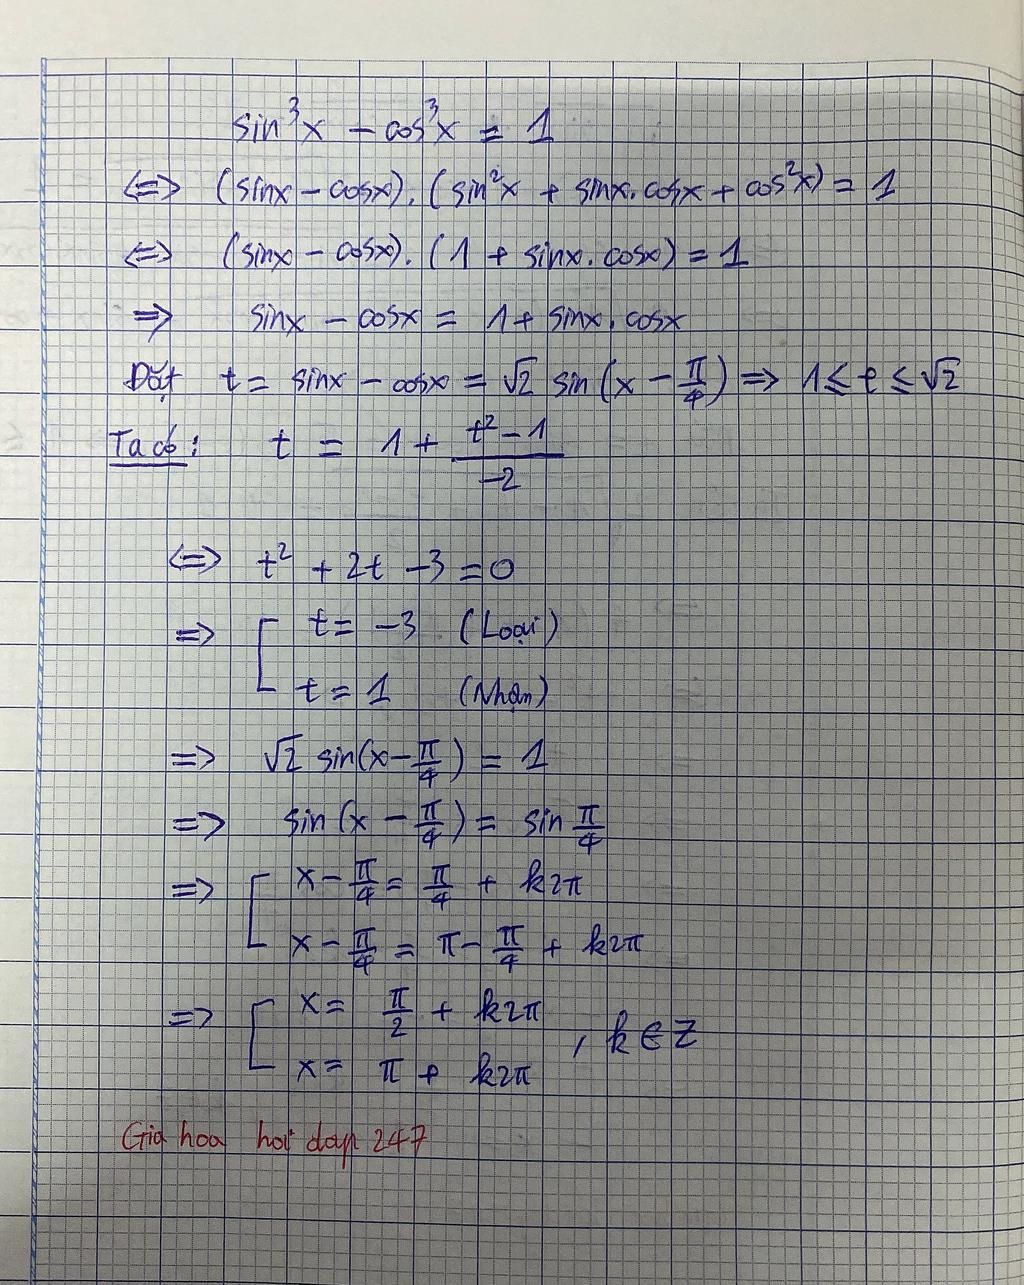 sin³x - cos³x = 1
<=> (sinx - cosx).(sin²x + sinx.cosx + cos²x) = 1
<=> (sinx - cosx).(1 + sinx.cosx) = 1
=> sinx - cosx = 1 + sinx.cosx
Đặt t = sinx - cosx = √2 sin(x - π/4) => 1 ≤ t ≤ √2
Ta có: t = 1 + (t² - 1)/-2
<=> t² + 2t - 3 = 0
=> [ t = -3 (Loại)
t = 1 (Nhận)
=> √2 sin(x - π/4) = 1
=> sin(x - π/4) = sin π/4
=> [ x - π/4 = π/4 + k2π
x - π/4 = π - π/4 + k2π
=> [ x = π/2 + k2π
x = π + k2π , k ∈ Z
Gia hoa hoi dap 247